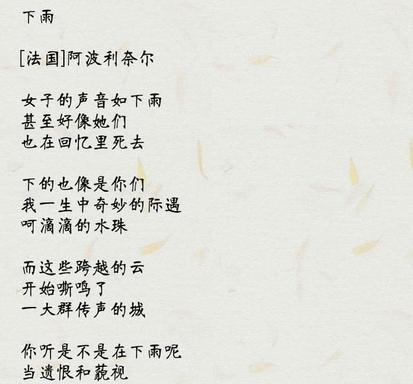 下雨
[法国]阿波利奈尔
女子的声音如下雨
甚至好像她们
也在回忆里死去
下的也像是你们
我一生中奇妙的际遇
呵滴滴的水珠
而这些跨越的云
开始嘶鸣了
一大群传声的城
你听是不是在下雨呢
当遗恨和藐视